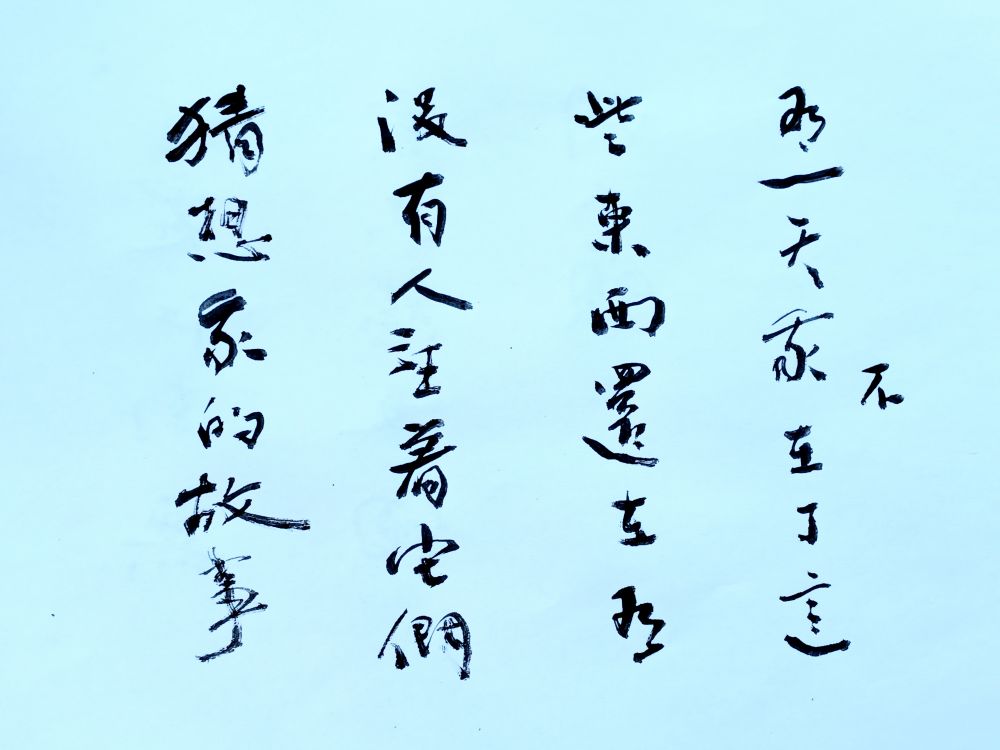 有一天我不在了這
些東西還在有
沒有人注着它們
猜想我的故事